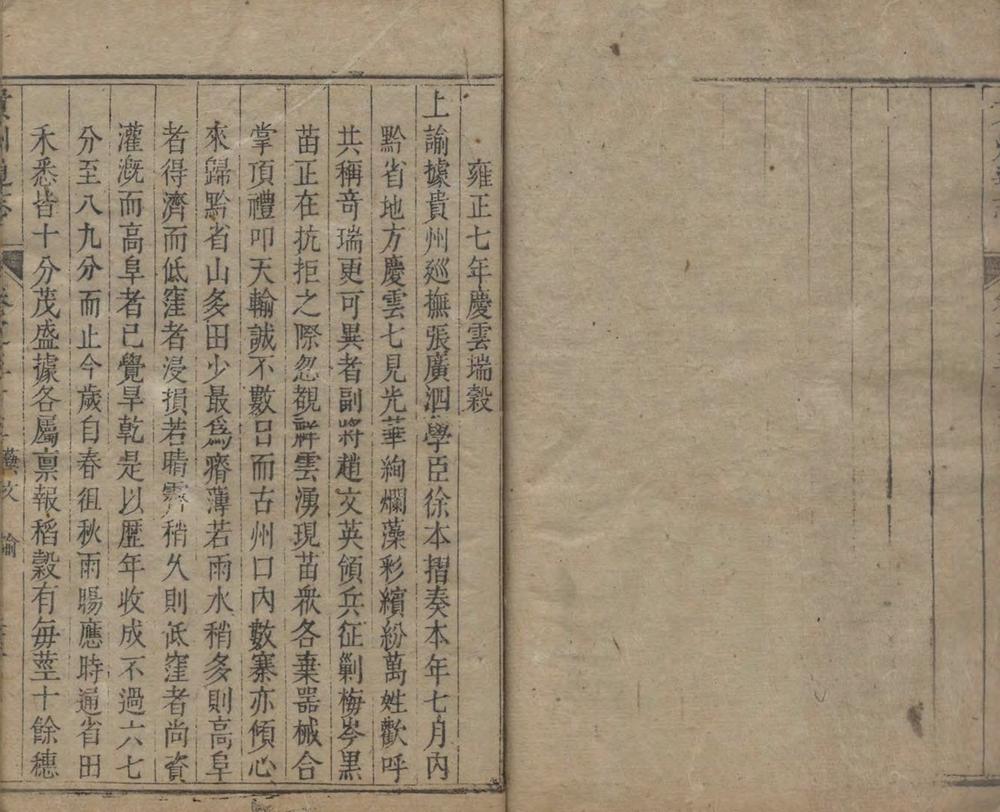 雍正七年慶雲瑞穀
上諭據貴州巡撫張廣泗學臣徐本摺奏本年七月內
黔省地方慶雲七見光華絢爛藻彩繽紛萬姓歡呼
共稱奇瑞更可異者副將趙文英領兵征剿梅岑黑
苗正在抗拒之際忽覩祥雲湧現苗衆各棄器械合
掌頂禮叩天輸誠不數日而古州口內數寨亦傾心
來歸黔省山多田少最爲瘠薄若雨水稍多則高阜
者得濟而低窪者浸損若晴霽稍久則低窪者尚資
灌漑而高阜者已覺旱乾是以歷年收成不過六七
分至八九分而止今歲自春徂秋雨暘應時通省田
禾悉皆十分茂盛據各屬禀報稻穀有每莖十餘穗
藝文 諭